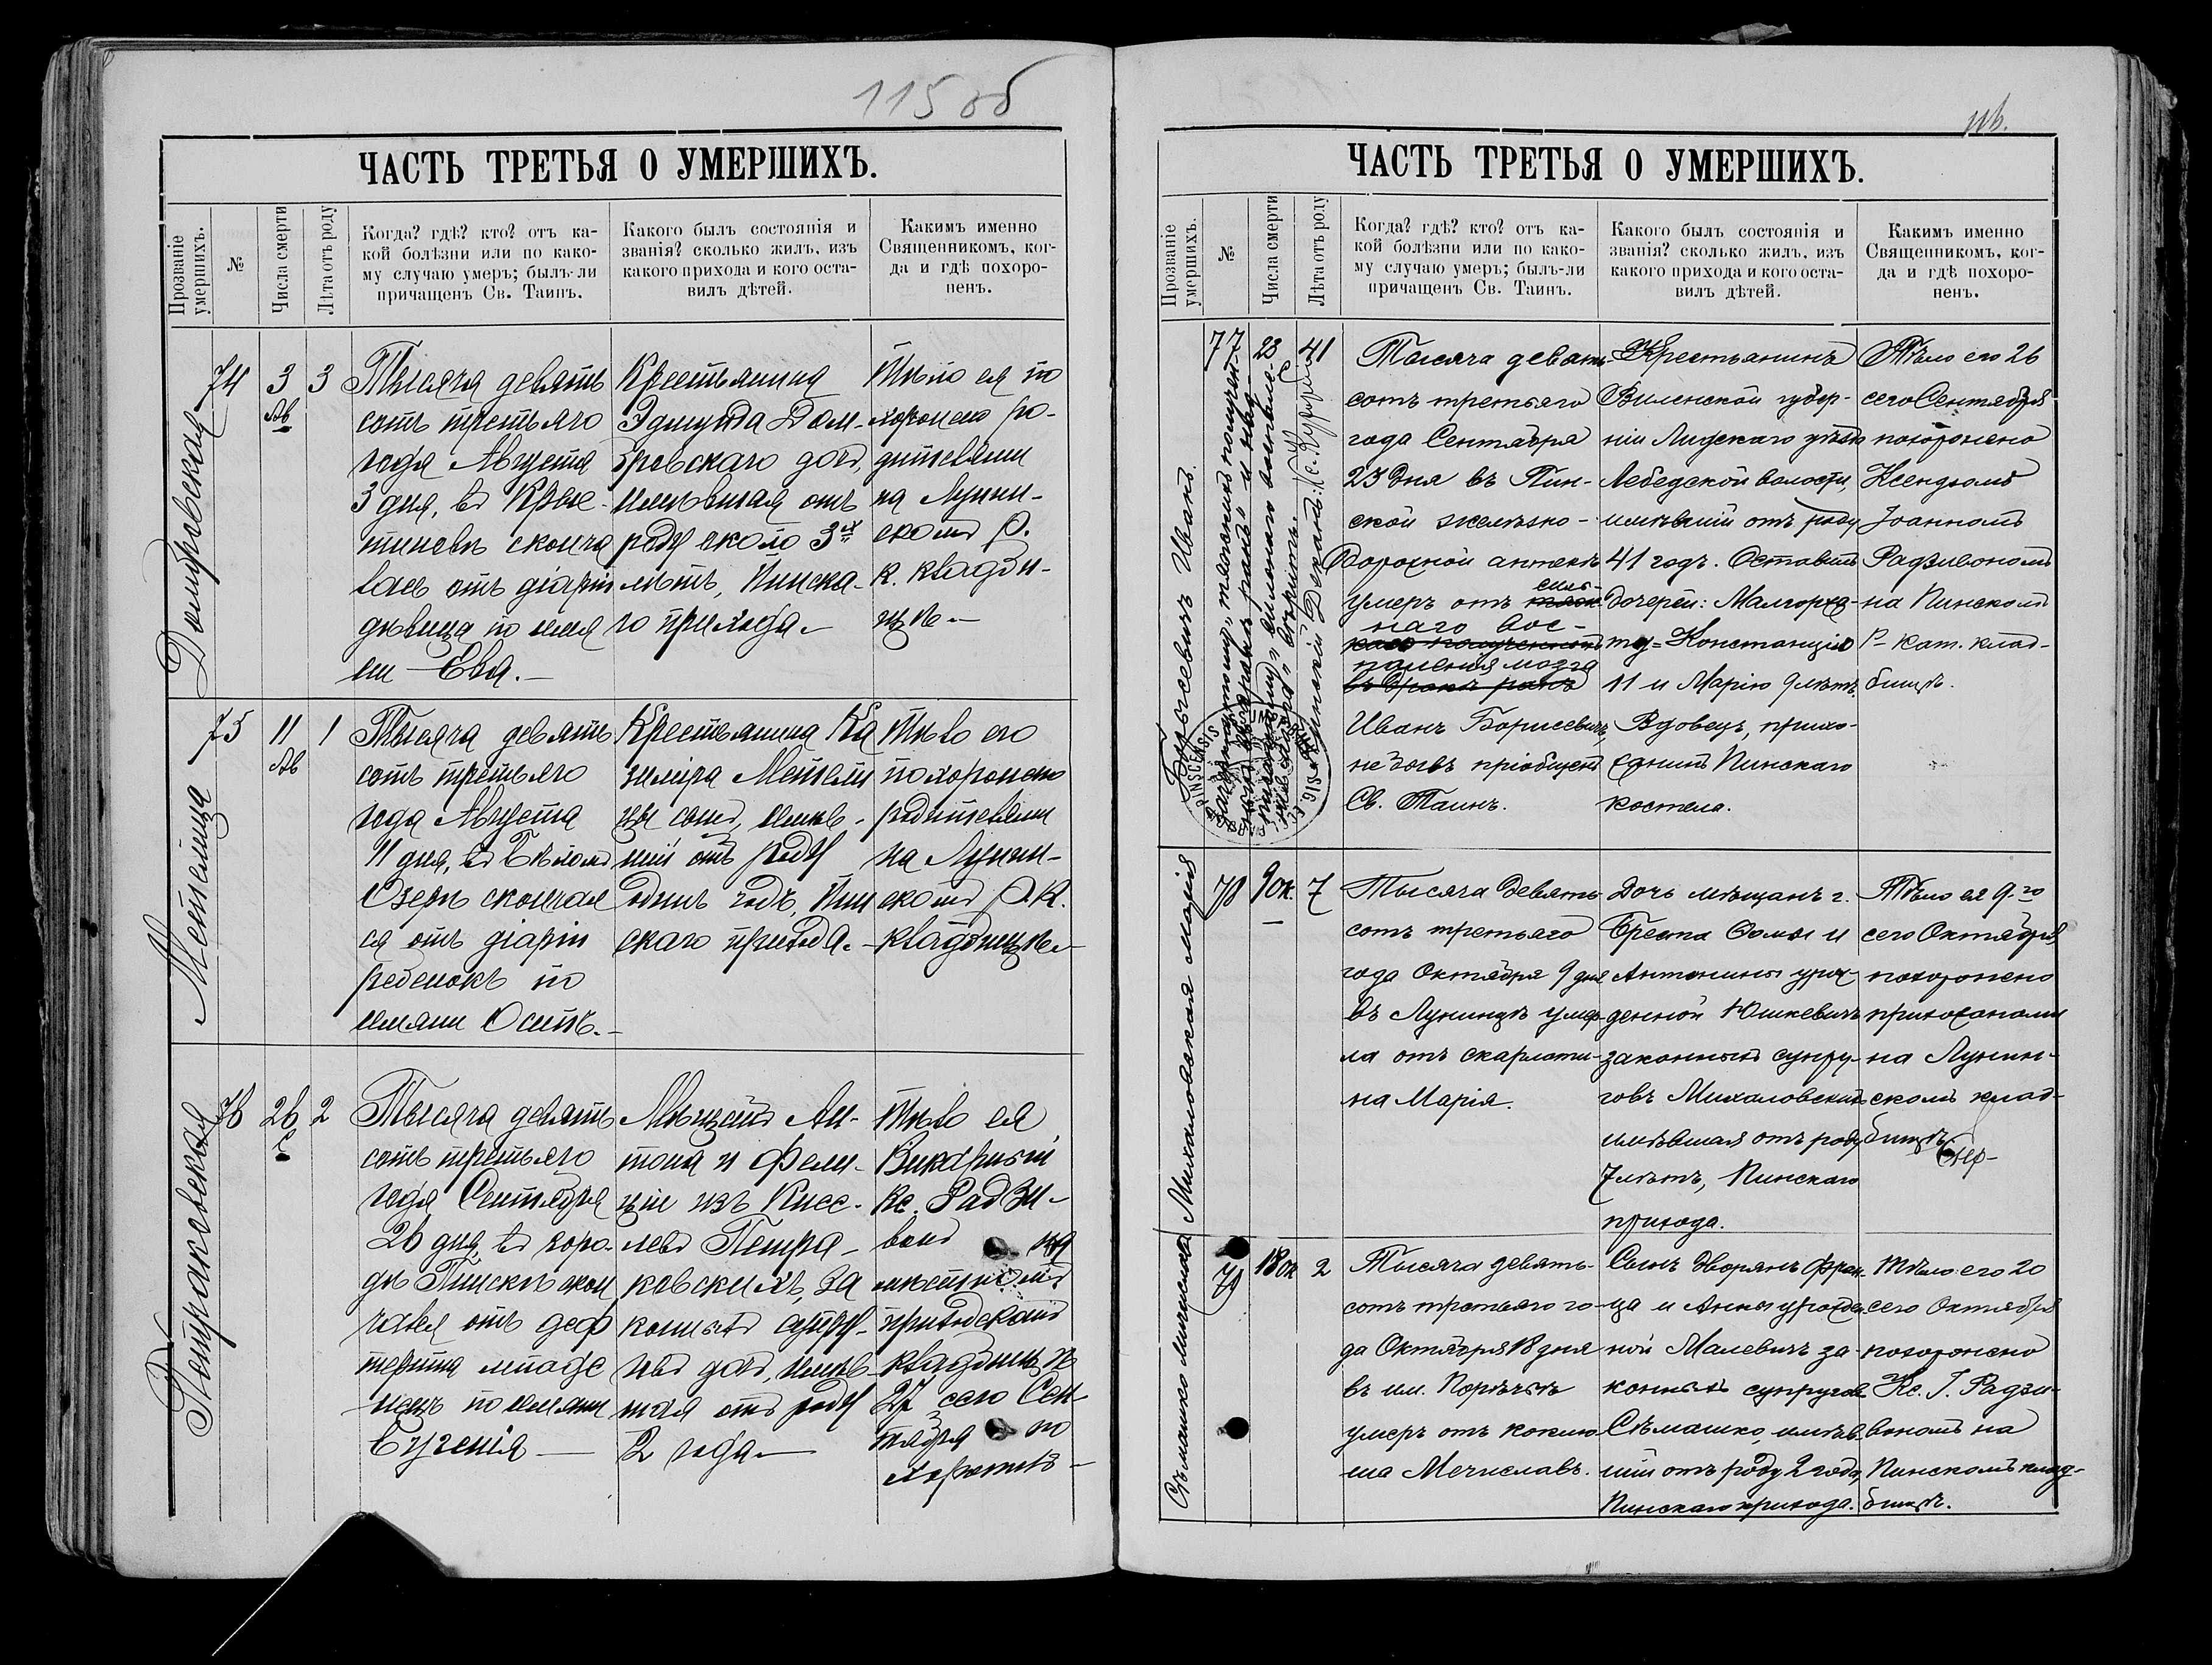 115 об
ЧАСТЬ ТРЕТЬЯ О УМЕРШИХЪ.
Прозваніе умершихъ.
№
Числа смерти
Лѣта отъ роду
Когда? гдѣ? кто? отъ ка-
кой болѣзни или по како-
му случаю умеръ; былъ-ли
причащенъ Св. Таинъ.
Какого былъ состоянія и
званія? сколько жилъ, изъ
какого прихода и кого оста-
вилъ дѣтей.
Какимъ именно
Священникомъ, ког-
да и гдѣ похоро-
ненъ.
Домбровская
74
3
Ав
3
Тысяча девять
сотъ третьяго
года Августа
3 дня, въ
сконча
лась отъ діаріи
дѣвица по имя
ни Ева.—
Крестьянина
Эдмунда Дом-
бровскаго дочь,
имѣвшая отъ
роду около 3-хъ
лѣтъ, Пинска-
го прихода.—
Тѣло ея по
хоронено ро-
дителями
на Лунин-
скомъ Р.
К. кладби-
щѣ.—
Метелица
75
11
Ав
1
Тысяча девять
сотъ третьяго
года Августа
11 дня, въ Бѣломъ
Озерѣ скончал
ся отъ діаріи
ребенокъ по
имяни Осипъ.—
Крестьянина Ка
зиміра Метели
цы сынъ, имѣв-
шій отъ роду
одинъ годъ, Пин
скаго прихода.—
Тѣло его
похоронено
родителями
на Лунин-
скомъ Р.К.
кладбищѣ.—
Петраковская
76
26
С
2
Тысяча девять
сотъ третьяго
года Сентября
26 дня, въ горо-
дѣ Пинскѣ скон
чалась отъ диф
терита младе
нецъ по имяни
Евгенія —
Мѣщанъ Ан-
тона и Фели-
ціи изъ Кисе-
левъ Петра-
ковскихъ, за
конныхъ супру-
говъ дочь, имѣв-
шая отъ роду
2 года —
Тѣло ея
Викарный
Кс. Радзи-
вонъ на
мѣстномъ
приходскомъ
кладбищѣ
27 сего Сен
тября по
хоронилъ —
116.
ЧАСТЬ ТРЕТЬЯ О УМЕРШИХЪ.
Прозваніе умершихъ.
№
Числа смерти
Лѣта отъ роду
Когда? гдѣ? кто? отъ ка-
кой болѣзни или по како-
му случаю умеръ; былъ-ли
причащенъ Св. Таинъ.
Какого былъ состоянія и
званія? сколько жилъ, изъ
какого прихода и кого оста-
вилъ дѣтей.
Какимъ именно
Священникомъ, ког-
да и гдѣ похоро-
ненъ.
Борысевичъ Иванъ.
77
23
С
41
Тысяча девять-
сотъ третьяго
года Сентября
23 дня въ Пин-
ской желѣзно-
дорожной аптекѣ
умеръ отъ силь-
наго вос-
паленія мозга
Иванъ Борисевичъ,
не бывъ пріобщенъ
Св. Таинъ.
Крестьянинъ
Виленской губер-
ніи Лидскаго уѣзда
Лебедской волости,
имѣвшій отъ роду
41 годъ. Оставилъ
дочерей: Малгорха-
ту= Констанцію
11 и Марію 9 лѣтъ.
Вдовецъ, прихо-
жанинъ Пинскаго
костела.
Тѣло его 26
сего Сентября
похоронено
Ксендзомъ
Іоанномъ
Радзивономъ
на Пинскомъ
Р- кат. клад-
бищѣ.
PINSCENSIS
Михаловская Марія
78
9 ок.
7
Тысяча девять
сотъ третьяго
года Октября 9 дня
въ Лунинцѣ умер-
ла отъ скарлати-
на Марія.
Дочь мѣщанъ г.
Бреста Фомы и
Антонины урож-
денной Юшкевичъ
законныхъ супру-
говъ Михаловскихъ
имѣвшая отъ роду
7 лѣтъ, Пинскаго
прихода.
Тѣло ея 9-го
сего Октября
похоронено
прихожанами
на Лунин-
скомъ клад-
бищѣ.
79
18 ок
2
Тысяча девять-
сотъ третьяго го-
да Октября 18 дня
въ им. Порѣчьѣ
умеръ отъ коклю-
ша Мечиславъ.
Сынъ дворянъ Фран-
ца и Анны урожден-
ной Малевичъ за-
конныхъ супруговъ
Сѣмашко, имѣв-
шій отъ роду 2 года,
Пинскаго прихода.
Тѣло его 20
сего Октября
похоронено
Кс. І. Радзи-
вономъ на
Пинскомъ клад-
бищѣ.